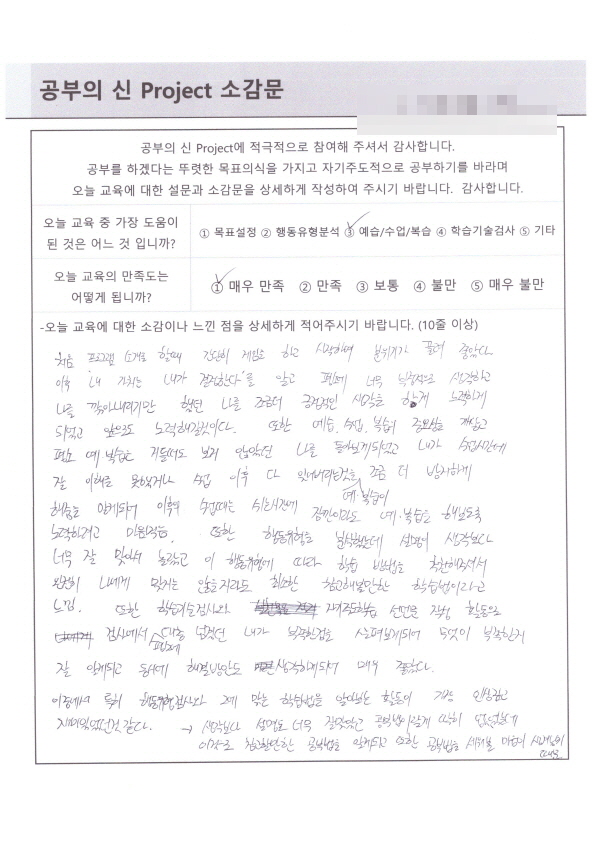 공부의 신 Project 소감문
공부의 신 Project에 적극적으로 참여해 주셔서 감사합니다.
공부를 하겠다는 뚜렷한 목표의식을 가지고 자기주도적으로 공부하기를 바라며
오늘 교육에 대한 설문과 소감문을 상세하게 작성하여 주시기 바랍니다. 감사합니다.
오늘 교육 중 가장 도움이
된 것은 어느 것 입니까?
① 목표설정 ② 행동유형분석 ③ 예습/수업/복습 ④ 학습기술검사 ⑤ 기타
오늘 교육의 만족도는
어떻게 됩니까?
① 매우 만족 ② 만족 ③ 보통 ④ 불만 ⑤ 매우 불만
-오늘 교육에 대한 소감이나 느낀 점을 상세하게 적어주시기 바랍니다. (10줄 이상)
처음 프로그램 소개를 할때 간단히 게임을 하고 시작하며 분위기가 풀려 좋았다
이후 '내 가치는 내가 결정한다'를 알고 평소에 너무 부정적으로 생각하고
나를 깎아내리기만 했던 나를 조금더 긍정적인 시각을 노력하게
되었고 앞으로도 노력해갈것이다. 또한 예습, 수업, 복습의 중요성을
평소 예·복습은 거들떠도 보지 않았던 나를 돌아보게되었고 내가 수업시간에
잘 이해를 못했거나 수업 이후 다 잊어버리는것을 조금 더
예·복습이
해줌을 알게되어 이후의 수업때는 쉬는시간에 잠깐이라도 예·복습을 해보도록
노력하려고 마음먹음. 또한 행동유형을 분석했는데 설명이 생각보다
너무 잘 맞아서 놀랐고 이 행동유형에 따라 학습 방법을 추천해주셔서
완전히 나에게 맞지는 않을지라도 최소한 참고해볼만한 학습법이라고
느낌. 또한 학습기술검사와 자기주도학습 선언문을 작성 활동으로
검사에서 평소에 대충 넘겼던 내가 부족한점을 살펴보게되어 무엇이 부족한지
잘 알게되고 동시에 해결방안도 생각하게되어 매우 좋았다.
이중에서 특히 행동유형검사와 그에 맞는 학습법을 알아보는 활동이 가장 인상깊고
재미있었던것 같다. → 생각보다 설명도 너무 잘맞았고
참고할만한 공부법을 알게되고 또한 공부법을 세워볼 마음이
때문